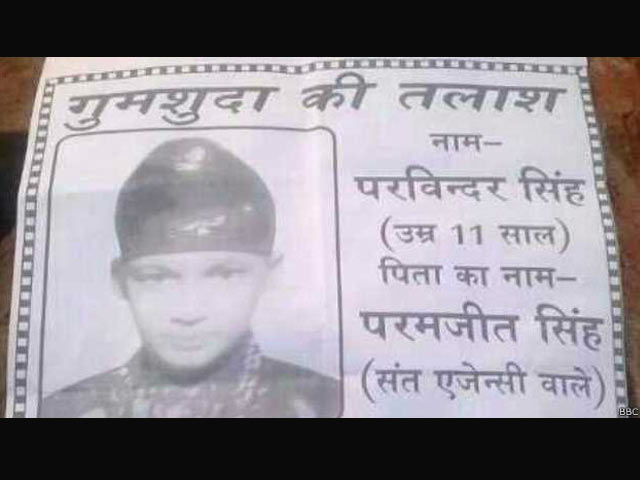 गुमशुदा की तलाश
नाम–
परविन्दर सिंह
(उम्र 11 साल)
पिता का नाम–
परमजीत सिंह
(संत एजेन्सी वाले)
BBC